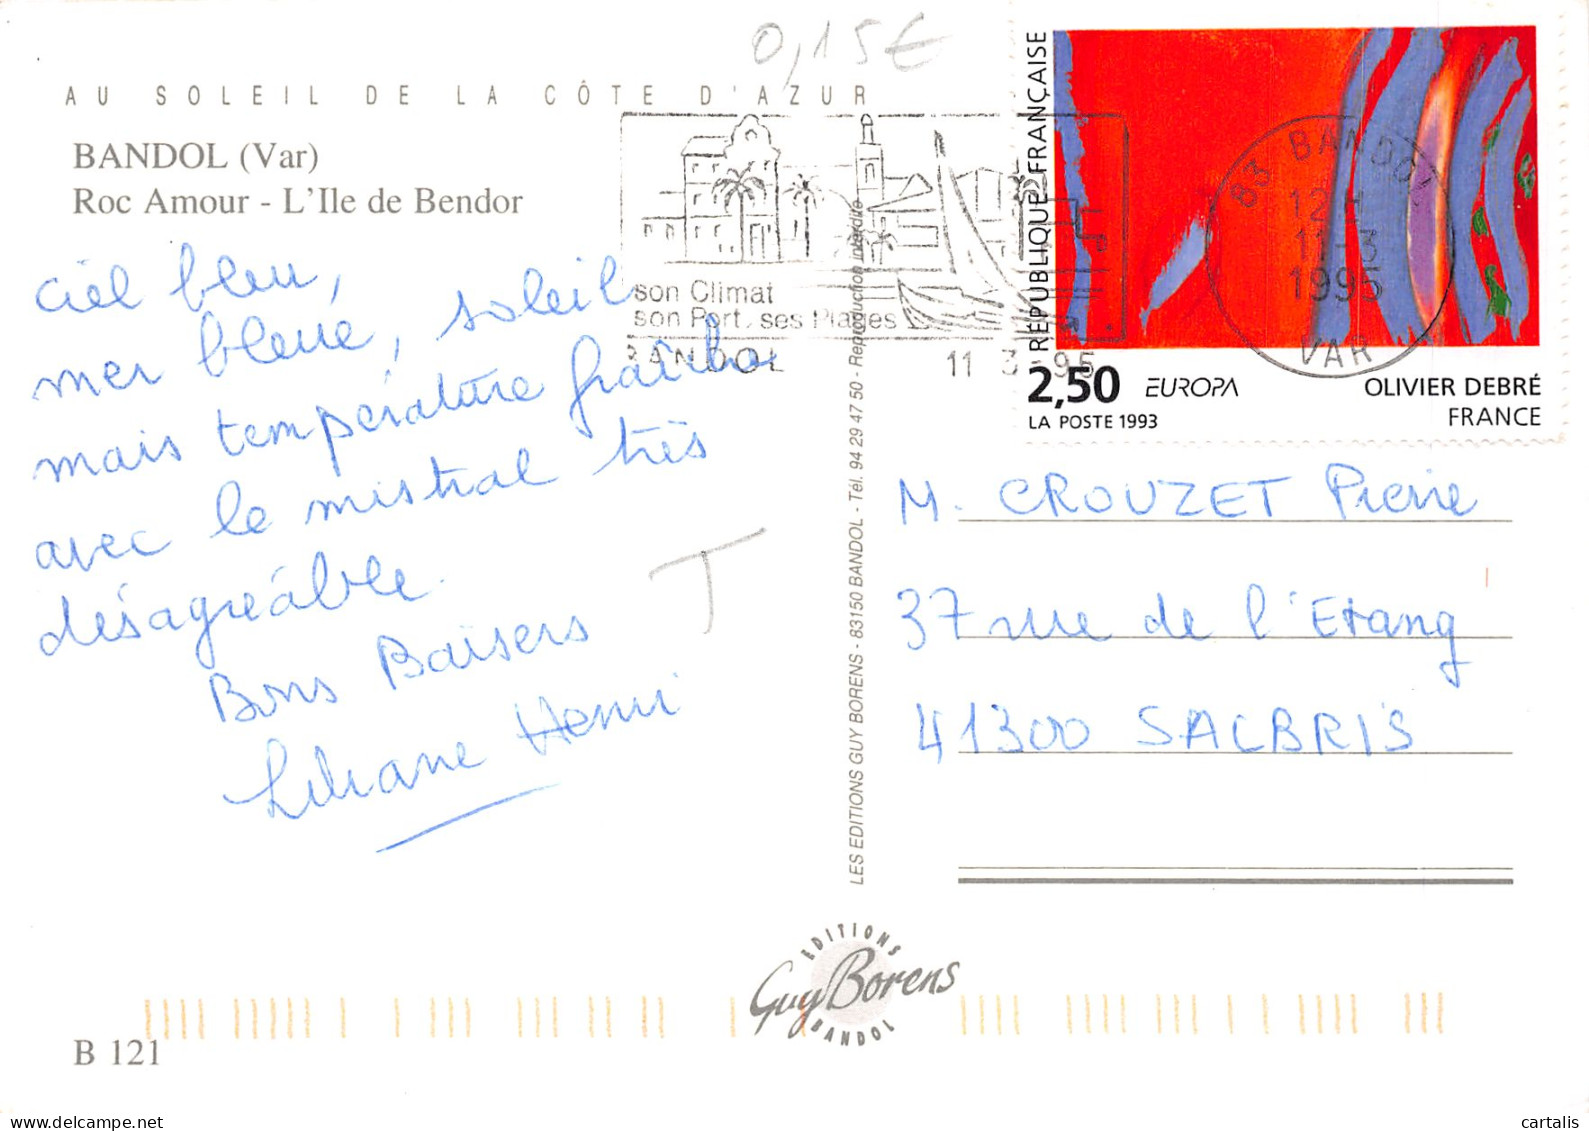 0,15€
AU SOLEIL DE LA CÔTE D'AZUR
BANDOL (Var)
Roc Amour - L'Ile de Bendor
ciel bleu,
mer bleue, soleil
mais température fraîche
avec le mistral très
désagréable.
Bons Baisers
Liliane Henri
T
son Climat
son Port, ses Plages
BANDOL 11 3-95
RÉPUBLIQUE FRANÇAISE
83 BANDOL
12H
11-3
1995
VAR
2,50 EUROPA OLIVIER DEBRÉ
LA POSTE 1993 FRANCE
M. CROUZET Pierre
37 rue de l'Etang
41300 SALBRIS
LES EDITIONS GUY BORENS - 83150 BANDOL - Tél. 94 29 47 50 - Reproduction interdite
EDITIONS
Guy Borens
BANDOL
B 121
delcampe.net
cartalis